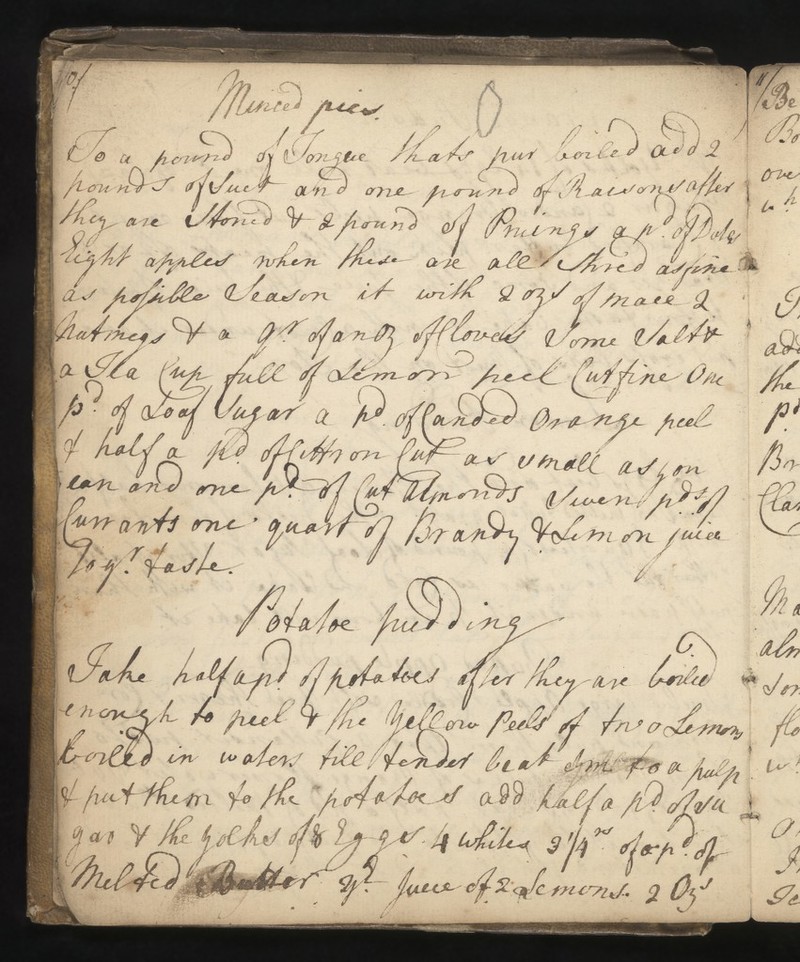 10/
Minced pies.
To a pound of Tongue thats pur boiled add 2
pounds of Suet and one pound of Raisons after
they are Stoned & 2 pound of Pruings a pd. of Dates
Eight apples when these are all Shred as fine
as possible Season it with 2 ozs of mace 2
Nutmegs & a qr of an oz of Cloves Some Salt &
a Tea Cup full of Lemon peel Cut fine One
pd. of Loaf Sugar a pd. of Canded Orange peel
& half a pd. of Cittron Cut as small as you
can and one pd. of Cut Almonds Seven pds. of
Currants one quart of Brandy & Lemon juice
To yr. taste.
Potatoe pudding
Take half a pd. of potatoes after they are boiled
enough to peel & the Yellow Peels of two Lemons
boiled in waters till tender beat to a pulp
& put them to the potatoes add half a pd. of su
gar & the yolks of 8 Eggs 4 whites 3/4rs of a pd. of
Melted Butter ye. juece of 2 Lemons. 2 Ozs
11/
Be
Bo
ove
add
the
pd
Br
Clar
Ma
alm
Som
flo